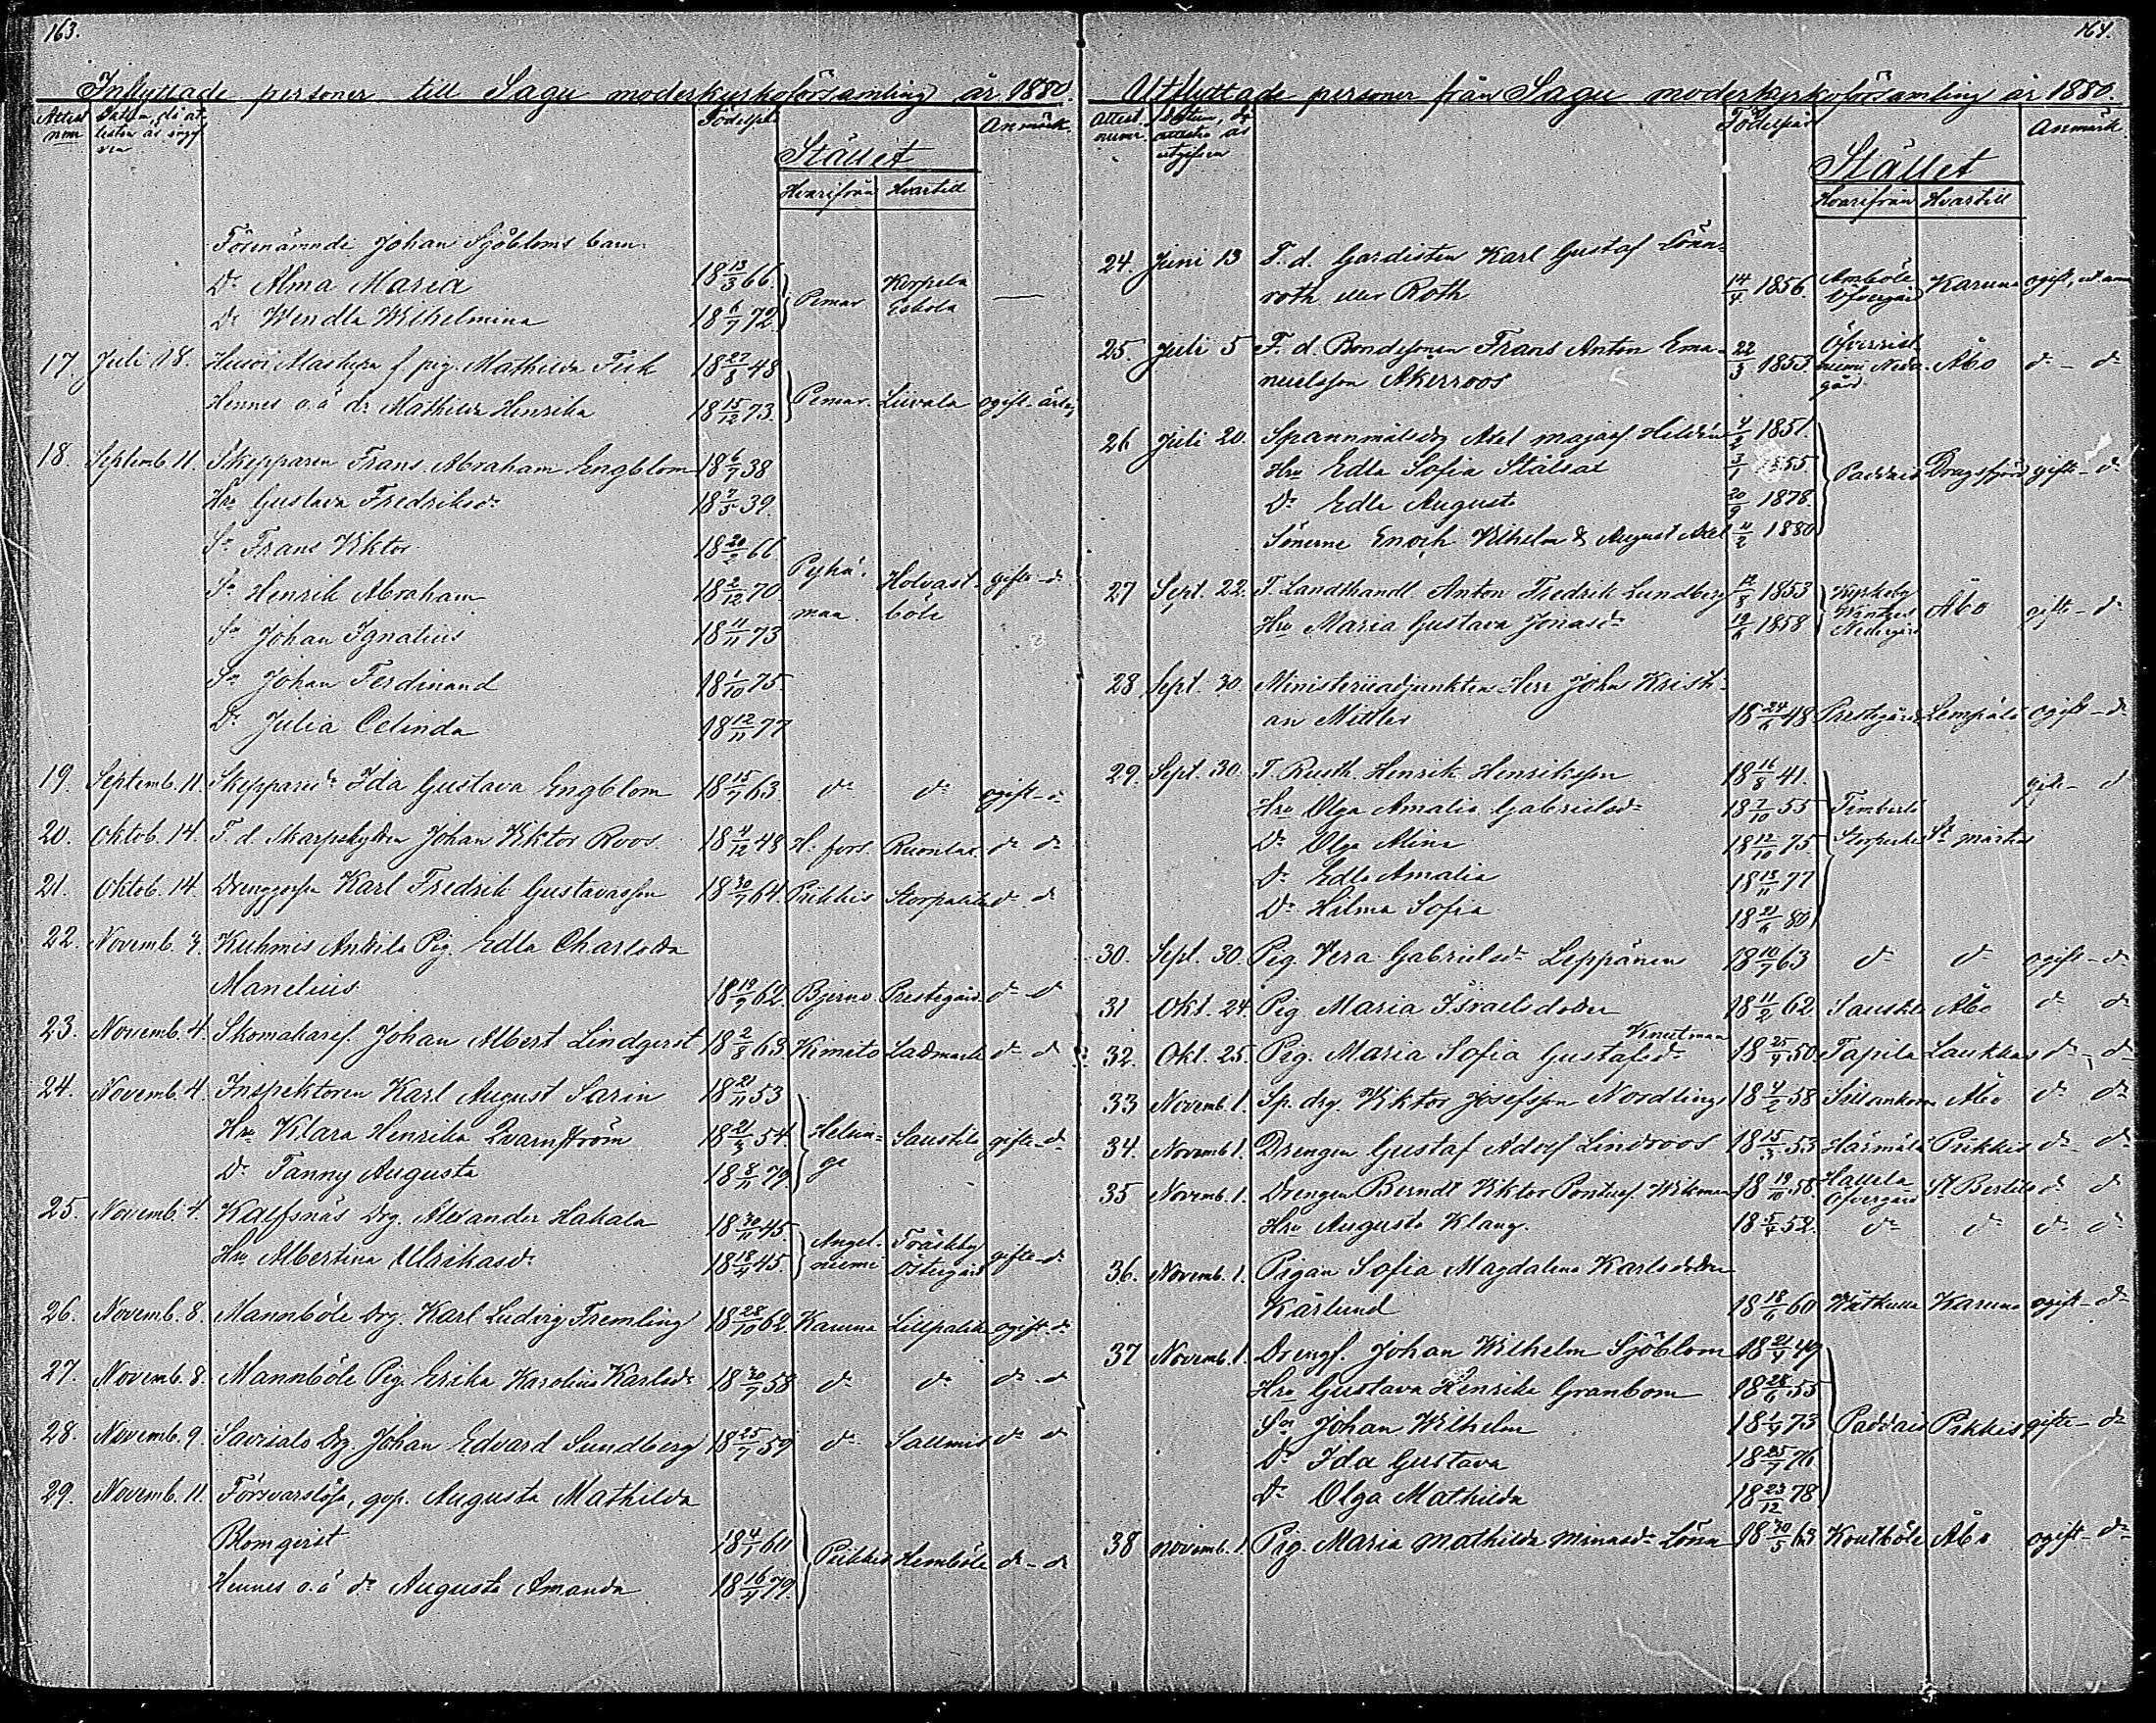 163.
Inflyttade personer till Sagu moderkyrkoförsamling år 1880.
Attest num Datum, då attesten är ingifven Födelseår Stället Anmärk.
Hvarifrån Hvartill
Förenämnde Johan Sjöbloms barn:
Dr Alma Maria 18 13/3 66. Pemar Korpela Eskola —
Dr Wendla Wilhelmina 18 6/7 72.
17. Juli 18. Mathilda 18 27/8 48 Pemar. Liuvala ogift
Hennes o.ä dr Mathilda Henrika 18 15/12 73.
18. Septemb. 11. Skepparen Frans Abraham Engblom 18 6/7 38
Hru Gustava Fredriksdr 18 7/5 39.
Sn Frans Viktor 18 20/2 66
Sn Henrik Abraham 18 2/12 70 Pyhämaa. Holvastböle gifte d:
Sn Johan Ignatius 18 11/11 73
Sn Johan Ferdinand 18 1/10 75.
Dr Julia Celinda 18 12/11 77
19. Septemb. 11. Skeppared:r Ida Gustava Engblom 18 15/7 63. d: d: ogift - d:
20. Oktob. 14. F. d. Skarpskytten Johan Viktor Roos. 18 4/12 48 H. fors. Ruonlax. d: d:
21. Oktob. 14. Drenggossen Karl Fredrik Gustavasson 18 30/7 64. Piikkis Storpaltila d: d:
22. Novemb. 3. Kuhmis Anttila Pig. Edla Charlotta
Manelius 18 19/9 62. Bjerno Prestegård. d: d:
23. Novemb. 4. Skomakaref. Johan Albert Lindqvist 18 2/8 63. Kimito Ladmark d: d:
24. Novemb. 4. Inspektoren Karl August Sarin 18 21/11 53
Hru Klara Henrika Qvarnström 18 21/3 54. Helsinge Saustila gifte - d:
Dr Fanny Augusta 18 8/11 79.
25. Novemb. 4. Kalfsnäs Drg. Alexander Hakala 18 30/11 45. Angelniemi Träskby Östergård gifte - d:
Hru Albertina Ulrikasdr 18 18/4 45.
26. Novemb. 8. Mannböle Drg. Karl Ludvig Fremling 18 28/10 62. Karuna Lillpaltila ogift - d:
27. Novemb. 8. Mannböle Pig. Erika Karolina Karlsdr 18 30/7 58 d: d: d: d:
28. Novemb. 9. Savisalo Drg. Johan Edvard Sundberg 18 25/7 59 d: Sallmis d: d:
29. Novemb. 11. Försvarslösa, qvp. Augusta Mathilda
Blomqvist 18 4/7 60 Piikkis Hemböle d: - d:
Hennes o.ä dr Augusta Amanda 18 16/4 79.
164.
Utflyttade personer från Sagu moderkyrkoförsamling år 1880.
Attest numr. Datum, då attesten är utgifven Födelseår Stället Anmärk.
Hvarifrån Hvartill
24. Juni 13 F. d. Gardisten Karl Gustaf Lönn-
roth eller Roth 14/4 1856. Amböle Öfvergård Karuna ogift, ut. anm
25. Juli 5 F. d. Bondesonen Frans Anton Ema-
nuelsson Akerroos 22/3 1853. Åbo d: - d:
26 Juli 20. Spannmålsdrg Axel Hildén 4/2 1851.
Hru Edla Sofia Stålsax 3/1 1855 Paddais Dragsfjärd gift - d:
Dr Edla Augusta 20/9 1878.
Sönerne Enoch Vilhelm & August Axel 11/2 1880
27 Sept. 22. F. Landthandl. Anton Fredrik Lundberg 12/8 1853 Kyrkoby Nedergård Åbo gift - d:
Hru Maria Gustava Jonasdr 19/6 1858
28 Sept. 30. Ministeriiadjunkten Herr John Kristi-
an Mittler 18 24/6 48 Prestegård Lempälä ogift - d:
29. Sept. 30. F. Rusth. Henrik Henriksson 18 16/8 41. gift - d:
Hru Olga Amalia Gabrielsdr 18 7/10 55 Timberla
Dr Olga Alina 18 12/10 75 St Mårtens
Dr Edla Amalia 18 13/11 77
Dr Hilma Sofia 18 21/6 80
30. Sept. 30. Pig. Vera Gabrielsdr Leppänen 18 10/7 63 d: d: ogift - d:
31 Okt. 24. Pig. Maria Israelsdotter 18 11/2 62 Saustila Åbo d: d:
32. Okt. 25. Pig. Maria Sofia Gustafsdr Knutman 18 25/9 50 Tapila Laukkas d: - d:
33 Novemb. 1. Sp. drg. Viktor Josefsson Nordling 18 4/2 58 Sillankorva Åbo d: d:
34. Novemb 1. Drengen Gustaf Adolf Lindroos 18 15/3 53 Härmälä Piikkis d: d:
35 Novemb. 1. Drengen Berndt Viktor Pontusf. Wikman 18 19/10 58. Hallela Öfvergård St Bertils d: d:
Hru Augusta Klang. 18 5/4 52. d: d: d: d:
36. Novemb. 1. Pigan Sofia Magdalena Karlsdotter
Kärlund 18 18/11 60 Karuna ogift - d:
37 Novemb. 1. Drengf. Johan Wilhelm Sjöblom 18 21/9 49
Hru Gustava Henrika Granbom 18 28/6 55
Sn Johan Wilhelm 18 1/9 73 Paddais Pikkis gifte - d:
Dr Ida Gustava 18 25/7 76
Dr Olga Mathilda 18 23/12 78
38 novemb. 1. Pig. Maria Mathilda Minasdr Lönn 18 30/5 63 Koutböle Åbo ogift - d: